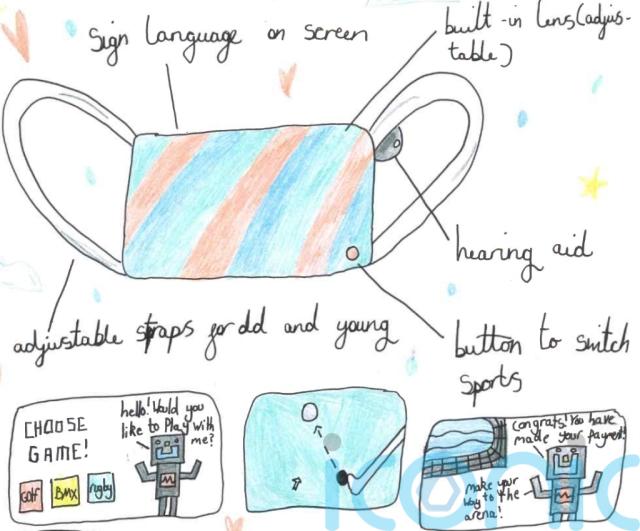 sign language on screen
built-in lens(adjus-
table)
hearing aid
adjustable straps for old and young
button to switch
sports
CHOOSE
GAME!
hello! Would you
like to Play with
me?
Golf
BMX
rugby
congrats! You have
made your payment!
make your
way to the
arena!
iconic